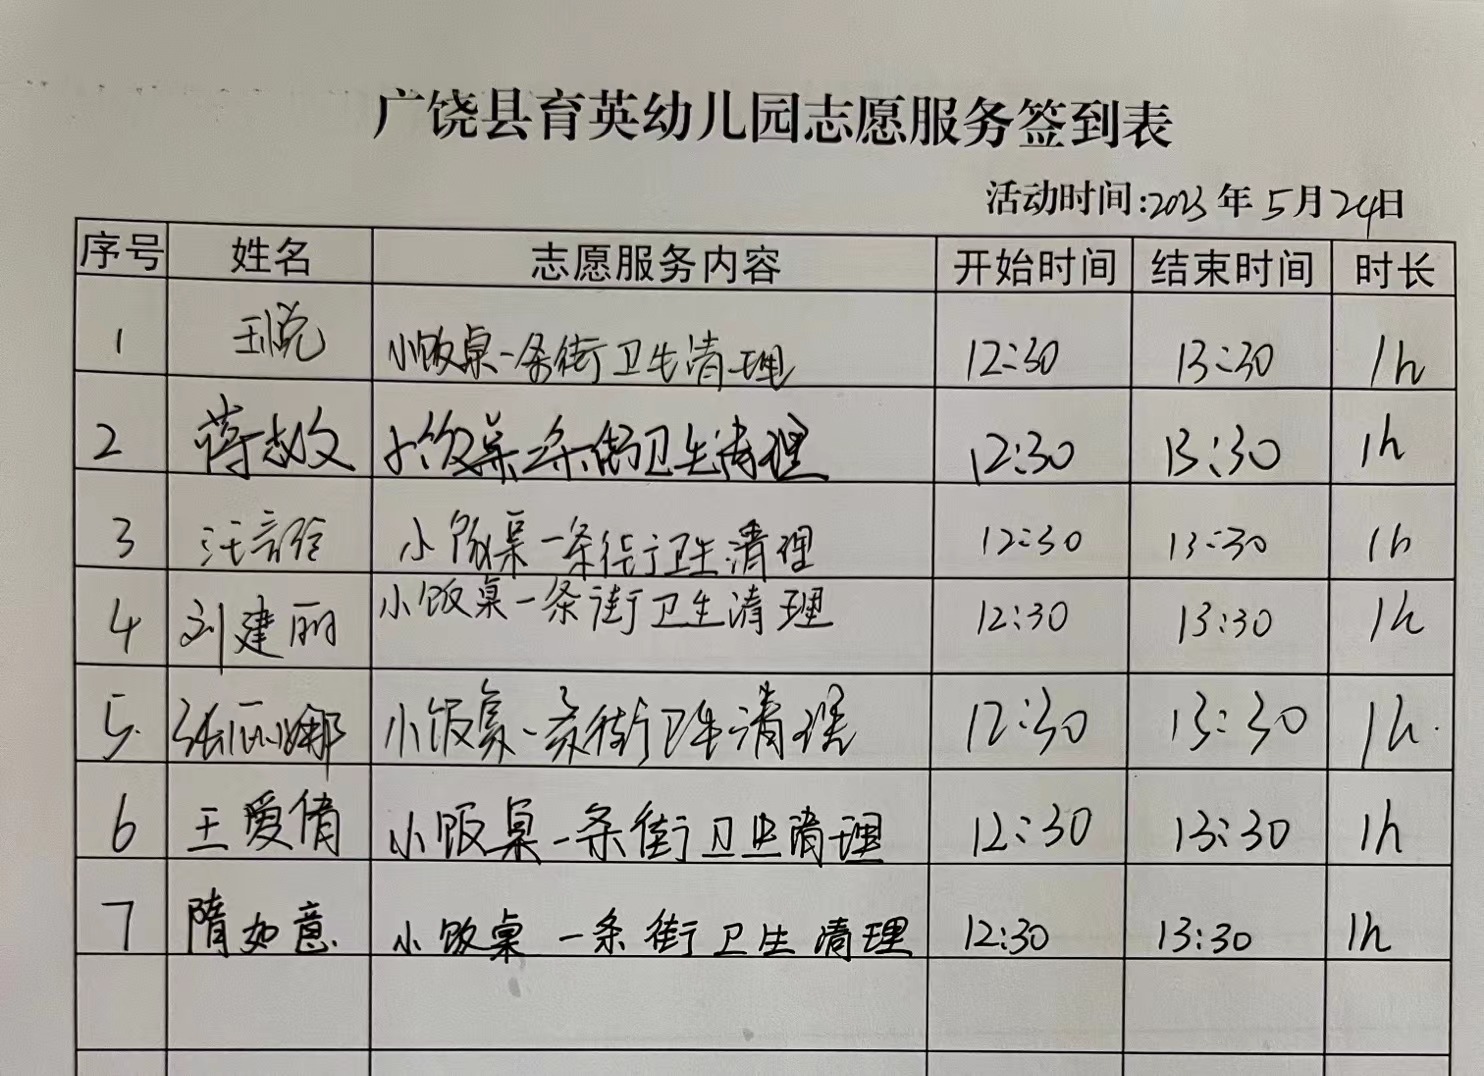 广饶县育英幼儿园志愿服务签到表
活动时间:2023年5月24日
序号 姓名 志愿服务内容 开始时间 结束时间 时长
1 王悦 小饭桌一条街卫生清理 12:30 13:30 1h
2 蒋志文 小饭桌一条街卫生清理 12:30 13:30 1h
3 小饭桌一条街卫生清理 12:30 13:30 1h
4 刘建丽 小饭桌一条街卫生清理 12:30 13:30 1h
5. 张丽娜 小饭桌一条街卫生清理 12:30 13:30 1h.
6 王爱倩 小饭桌一条街卫生清理 12:30 13:30 1h
7 隋如意 小饭桌一条街卫生清理 12:30 13:30 1h